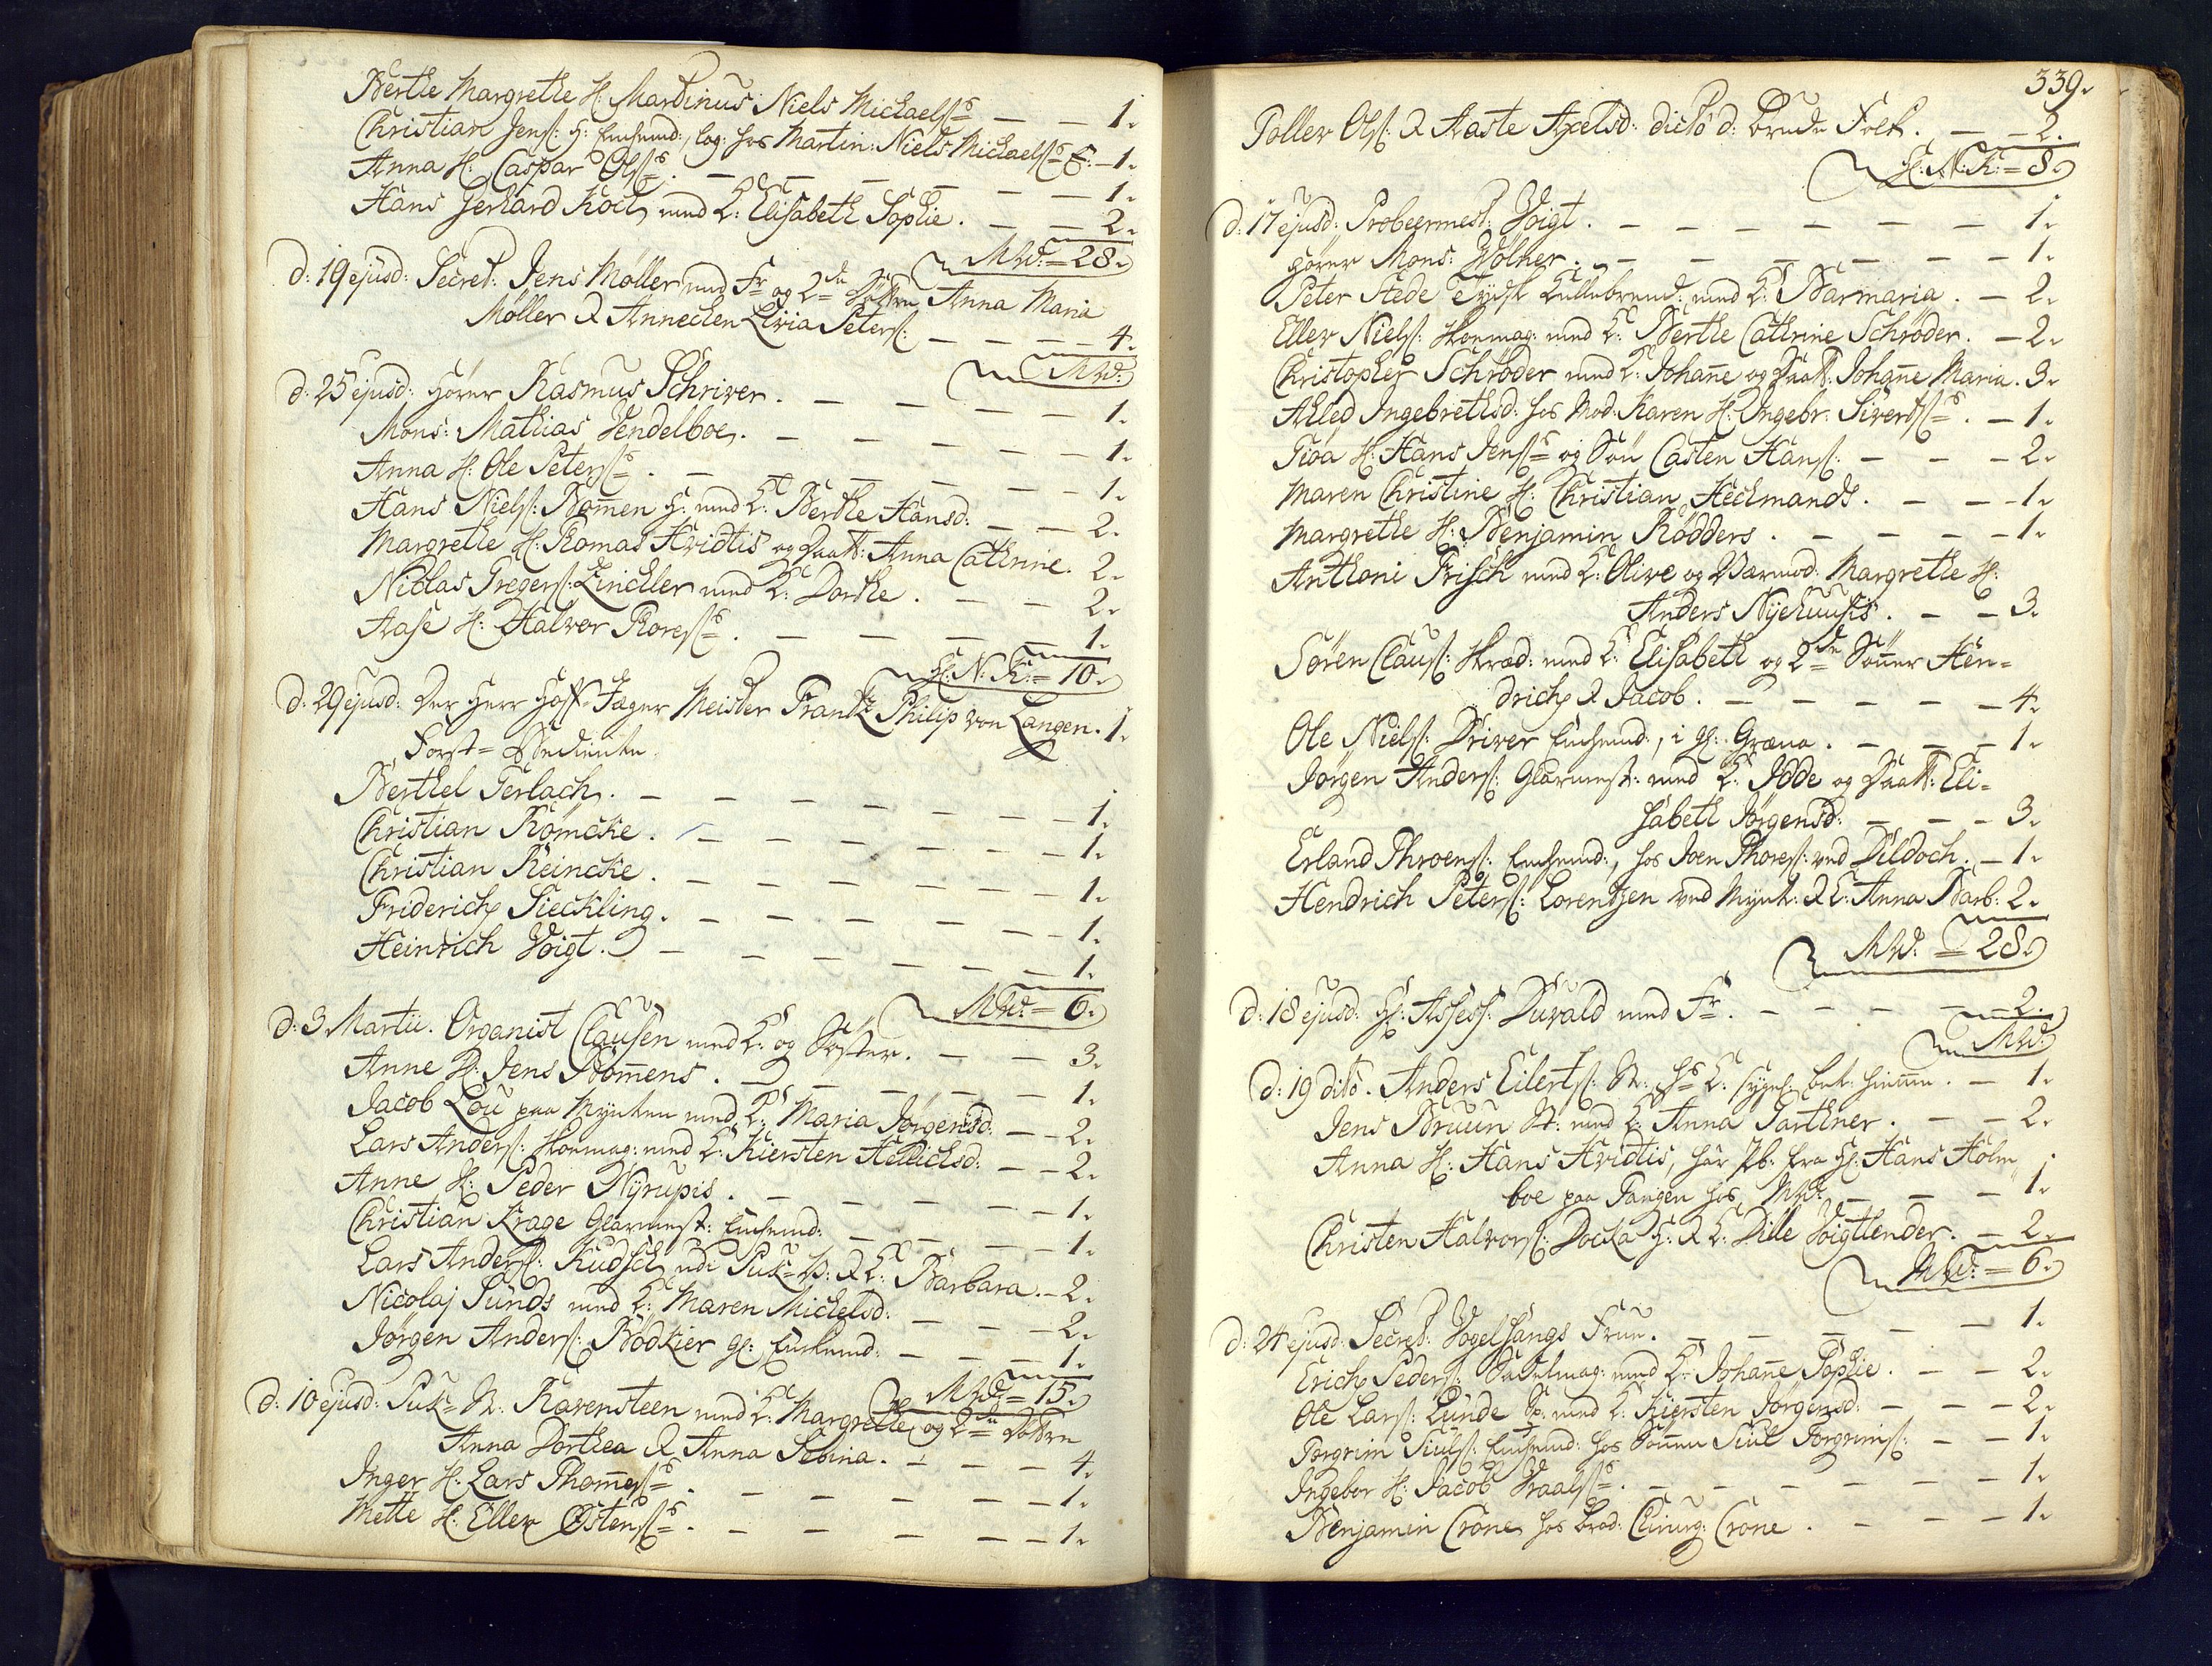 Berthe Margrethe H: Martinus Niels Michaelsß — — 1.
Christian Jenß: H: Enchemd: log: hos Martin: Niels Michaelsß E: — 1.
Anna H: Caspar Olsß. — — — — — 1.
Hans Gerhard Koch med K: Elisabeth Sophie. — — 2.
MW: = 28.
d: 19 ejusd: Secret: Jens Møller med Fr: og 2de Døttre Anna Maria
Møller & Annechen Livia Peterß: — — — — 4.
MW:
d: 25 ejusd: Hörer Rasmus Schriver. — — — — — 1.
Mons: Mathias Vendelboe. — — — — — 1.
Anna H: Ole Petersß. — — — — — 1.
Hans Nielß: Bomen H: med K: Berthe Hansd: — — 2.
Margrethe H: Thomas Hvidtis og Daatt: Anna Cathrine. 2.
Niclas Gregerß: Zinckler med K: Dorthe. — — 2.
Aase H: Halvor Roresß. — — — — 1.
H: N: K: = 10.
d: 29 ejusd: Der Herr Hoff-Jäger Meister Frantz Philip von Langen. 1.
Forst = Bediente.
Berthel Gerlach. — — — — — — 1.
Christian Römcke. — — — — — — 1.
Christian Reincke. — — — — — — 1.
Friderich Sieckling. — — — — — — 1.
Heinrich Voigt. — — — — — — 1.
MW: = 6.
d: 3. Martii. Organist Clausen med K: og Søster. — — 3.
Anne H: Jens Bomens. — — — — — 1.
Jacob Lou paa Mynten med K: Maria Jørgensd: — — 2.
Lars Anderß: Skomag: med K: Kiersten Hellichsd: — — 2.
Anne H: Peder Nyrupis. — — — — — 1.
Christian Krage Glarmest: Enchemd: — — — — 1.
Lars Anderß: Kudsch udi Suk= H: & K: Barbara. — 2.
Nicolaj Sunds med K: Maren Michelsd: — — — 2.
Jørgen Anderß: Bödkier gl: Enchemd: — — — 1.
MW: = 15.
d: 10 ejusd: Suk= R: Ravensteen med K: Margrethe og 2de Døttre
Anna Dorthea & Anna Sebina. — — — 4.
Inger H: Lars Thomesß. — — — — — — 1.
Mette H: Eller Østensß. — — — — — — 1.
339.
Toller Olß: & Aaste Axelsd: dicto d: Brude Folk. — — 2.
H: N: K: = 8.
d: 17 ejusd: Probeermest: Voigt. — — — — — — 1.
Hörer Mons: Wölner. — — — — — — 1.
Peter Stede Tydsk Kullebrend: med K: Barmaria. — 2.
Eller Nielß: Skomag: med K: Berthe Cathrine Schrøder. — 2.
Christopher Schrøder med K: Johane og Daatt: Johane Maria. 3.
Ahled Ingebrethsd: hos Mod: Karen H: Ingebr: Sivertsß. — 1.
Tioa H: Hans Jensß og Sön Casten Hanß: — — — 2.
Maren Christine H: Christian Heckmands. — — — 1.
Margrethe H: Benjamin Rødders. — — — — — 1.
Anthoni Frisch med K: Olive og Værmod: Margrethe H:
Anders Nyehuusis. — — 3.
Søren Clausß: Skræd: med K: Elisabeth og 2de Sönner Hen=
drich & Jacob. — — — — — 4.
Ole Nielß: Driver Enchemd:, i gl: Grava. — — — 1.
Jørgen Anderß: Glarmest: med K: Idde og Daatt: Eli=
sabeth Jørgensd: — — — 3.
Erland Throenß: Enchemd:, hos Joen Thoreß: ved Dildoch. — 1.
Hendrich Peterß: Lorentzen ved Mynt: & K: Anna Barb: 2.
MW: = 28.
d: 18 ejusd: H: Assess: Duvald med Fr. — — — — 2.
MW:
d: 19 dito. Anders Eilertß: St: hs K: syg bet: hiemme. — 1.
Jens Bruun St: med K: Anna Parthner. — — 2.
Anna H: Hans Hvidtis, har Pb: fra H: Hans Holm
boe paa Tangen hos MW: — — — 1.
Christen Halvorß: Docka H: & K: Dille Voigtlender. — 2.
MW: = 6.
d: 24 ejusd: Secret: Vogelsangs Frue. — — — — — 1.
Erich Pederß: Sadelmag: med K: Johane Sophie. — — 2.
Ole Larß: Lunde Sp: med K: Kiersten Jørgensd: — — — 2.
Torgrim Siulß: Enchemd: hos Sönnen Siul Torgrimß: — — 1.
Ingebor H: Jacob Vraalsß. — — — — — — 1.
Benjamin Crone hos brod: Chirurg: Crone. — — — — 1.